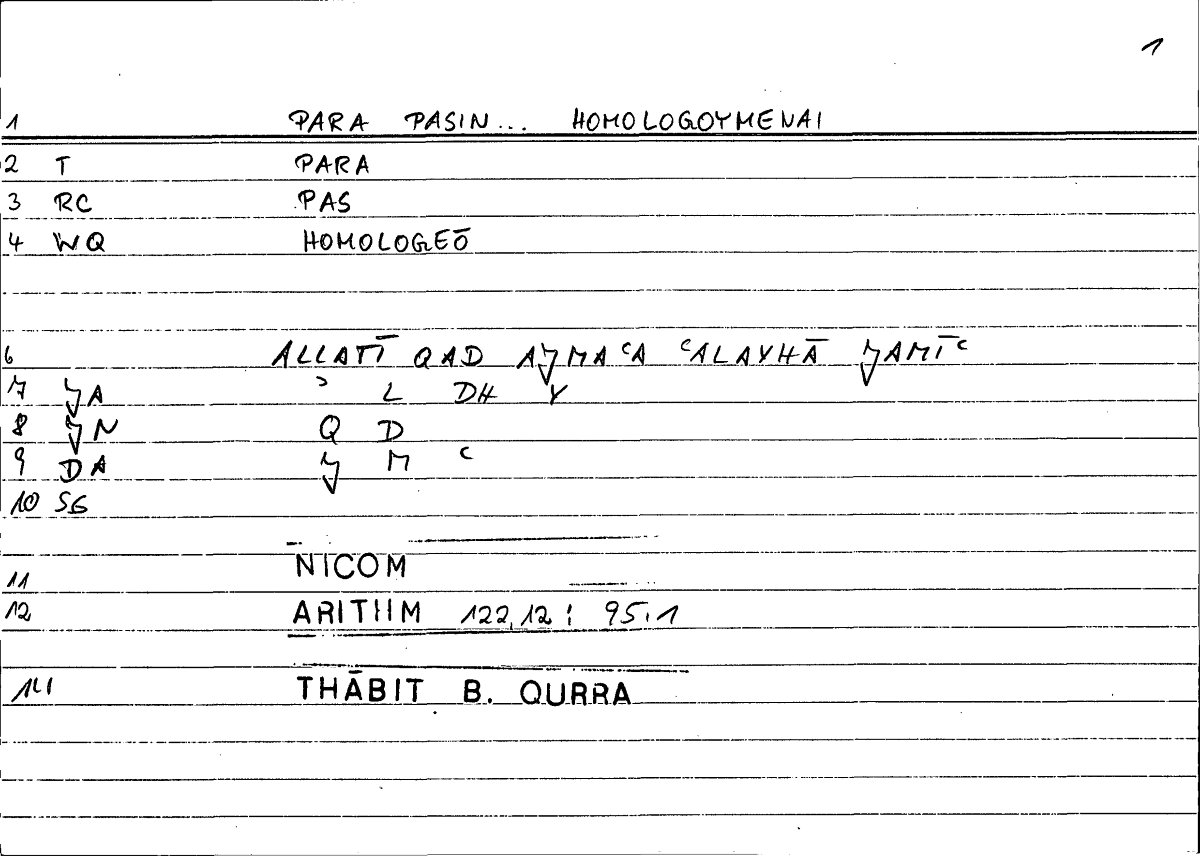 1
1 PARA PASIN... HOMOLOGOYMENAI
2 T PARA
3 RC PAS
4 WQ HOMOLOGEŌ
6 ALLATĪ QAD AJ̬MAʿA ʿALAYHĀ J̬AMĪʿ
7 J̬A ʾ L DH Y
8 J̬N Q D
9 DA J̬ M ʿ
10 SG
11 NICOM
12 ARITHM 122,12 ; 95,1
14 THĀBIT B. QURRA